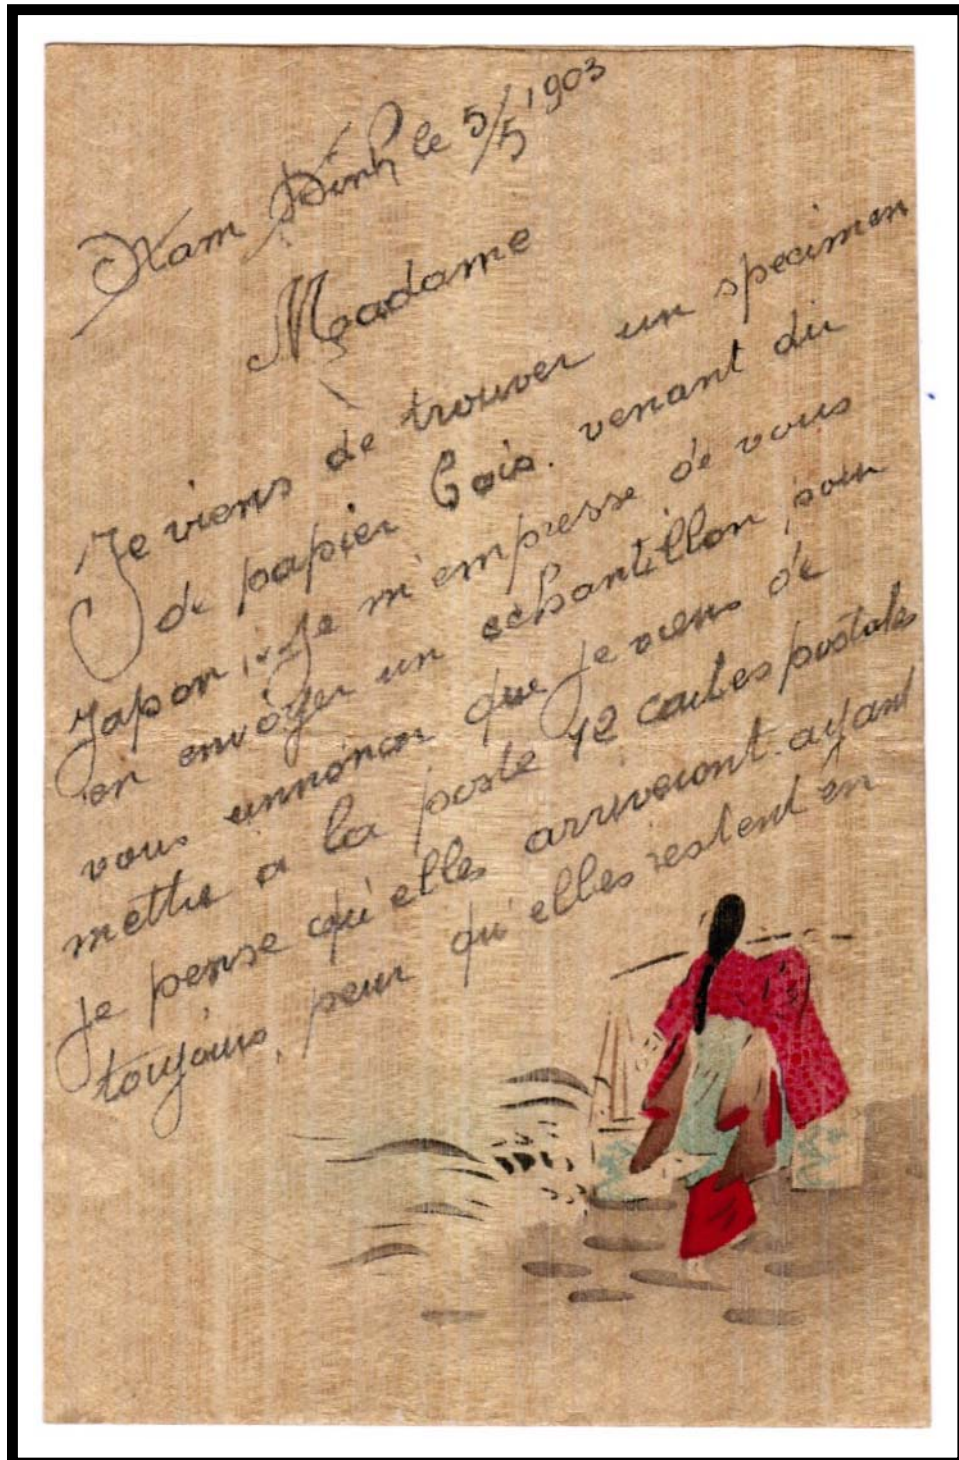 Nam Dinh le 5/5 1903
Madame
Je viens de trouver un specimen
de papier bois. venant du
Japon, Je m'empresse de vous
en envoyer un echantillon, pour
vous annoncer que je viens de
mettre a la poste 12 cartes postales
je pense qu'elles arriveront. ayant
toujours, peur qu'elles restent en